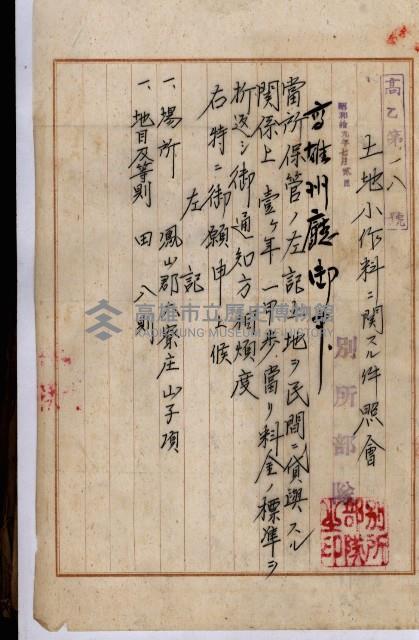 高乙第一八號
土地小作料ニ關スル件照會
昭和拾九年七月貳日
別所部隊
別所部隊之印
高雄州廳御中
當所保管ノ左記土地ヲ民間ニ貸與スル
關係上壹ヶ年一甲歩當リ料金ノ標準ヲ
折返シ御通知方相煩度
右特ニ御願申上候
左記
一、場所 鳳山郡大寮庄山子頂
一、地目及等則 田 八則
高雄市立歷史博物館
KAOHSIUNG MUSEUM OF HISTORY